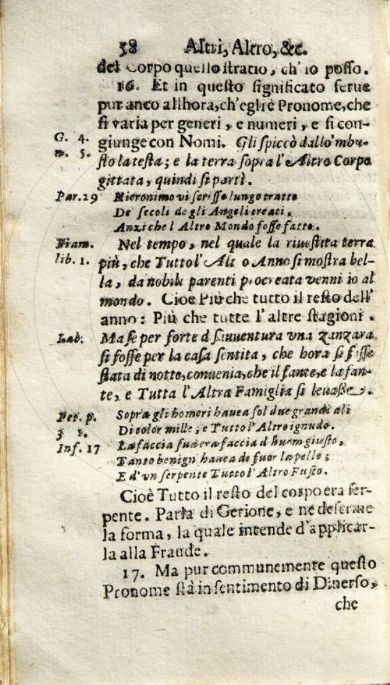 58 Altri, Altro, &c.
del Corpo quello stratio, ch'io posso.
16. Et in questo significato serue
pur anco allhora, ch'egli è Pronome, che
si varia per generi, e numeri, e si con-
G. 4. giunge con Nomi. Gli spiccò dallo'mbu-
n. 5. sto la testa; e la terra sopra l'Altro Corpo
gittata, quindi si partì.
Par. 29 Hieronimo vi scrisse lungo tratto
De' secoli de gli Angeli creati,
Anzi che l'Altro Mondo fosse fatto.
Fiam. Nel tempo, nel quale la riuestita terra
lib. 1. più, che Tutto l'Alt o Anno si mostra bel-
la, da nobili parenti procreata venni io al
mondo. Cioè Più che tutto il resto dell'
anno: Più che tutte l'altre stagioni.
Lab. Ma se per forte disauuentura vna zanzara
si fosse per la casa sentita, che hora si fosse
stata di notte, conuenia, che il fante, e la fan-
te, e Tutta l'Altra Famiglia si leuasse.
Pet. p. Sopra gli homeri hauea sol due grandi ali
3 Di color mille; e Tutto l'Altro ignudo.
Inf. 17 La faccia sua era faccia d'huom giusto,
Tanto benign' hauea di fuor la pelle;
E d'vn serpente Tutto l'Altro Fusto.
Cioè Tutto il resto del corpo era ser-
pente. Parla di Gerione, e ne descriue
la forma, la quale intende d'applicar-
la alla Fraude.
17. Ma pur communemente questo
Pronome stà in sentimento di Diuerso,
che